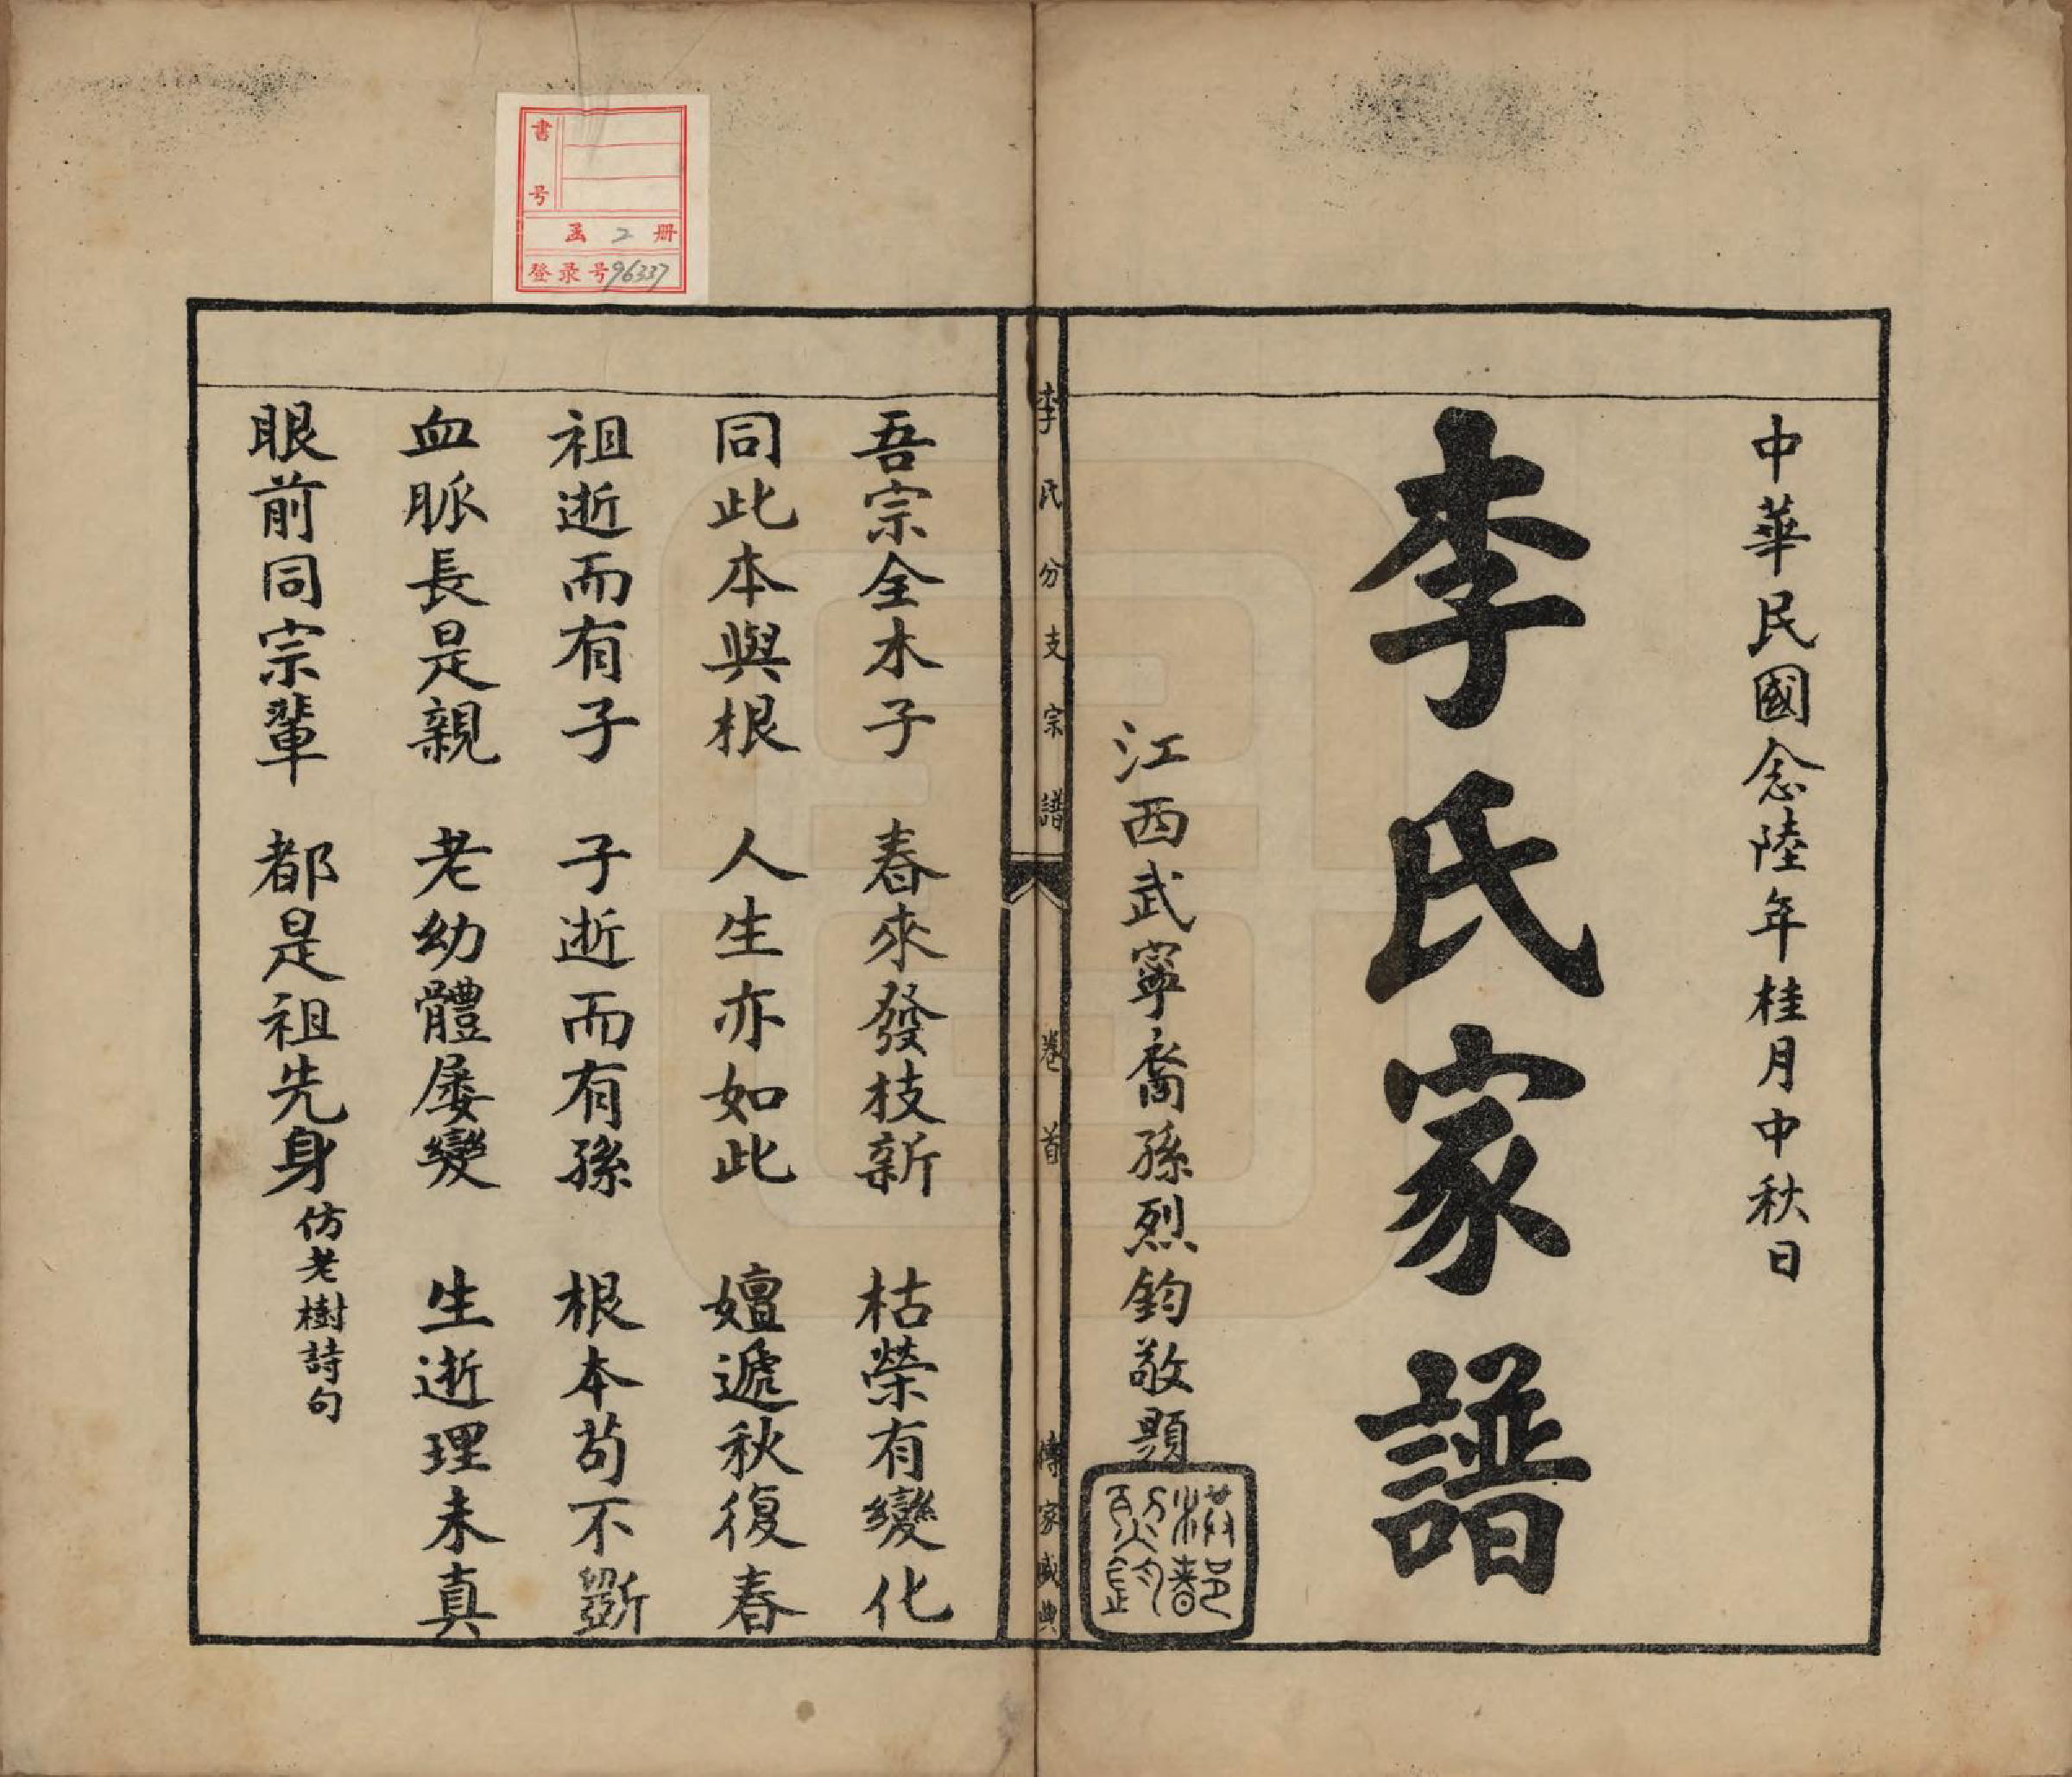 中華民國念陸年桂月中秋日
李氏家譜
江西武寧裔孫烈鈞敬題
李氏分支宗譜
卷首
傳家盛典
吾宗全木子 春來發枝新 枯榮有變化
同此本與根 人生亦如此 嬗遞秋復春
祖逝而有子 子逝而有孫 根本苟不斷
血脈長是親 老幼體屢變 生逝理未真
眼前同宗輩 都是祖先身 仿老樹詩句
書号
函 2 册
登录号 96337